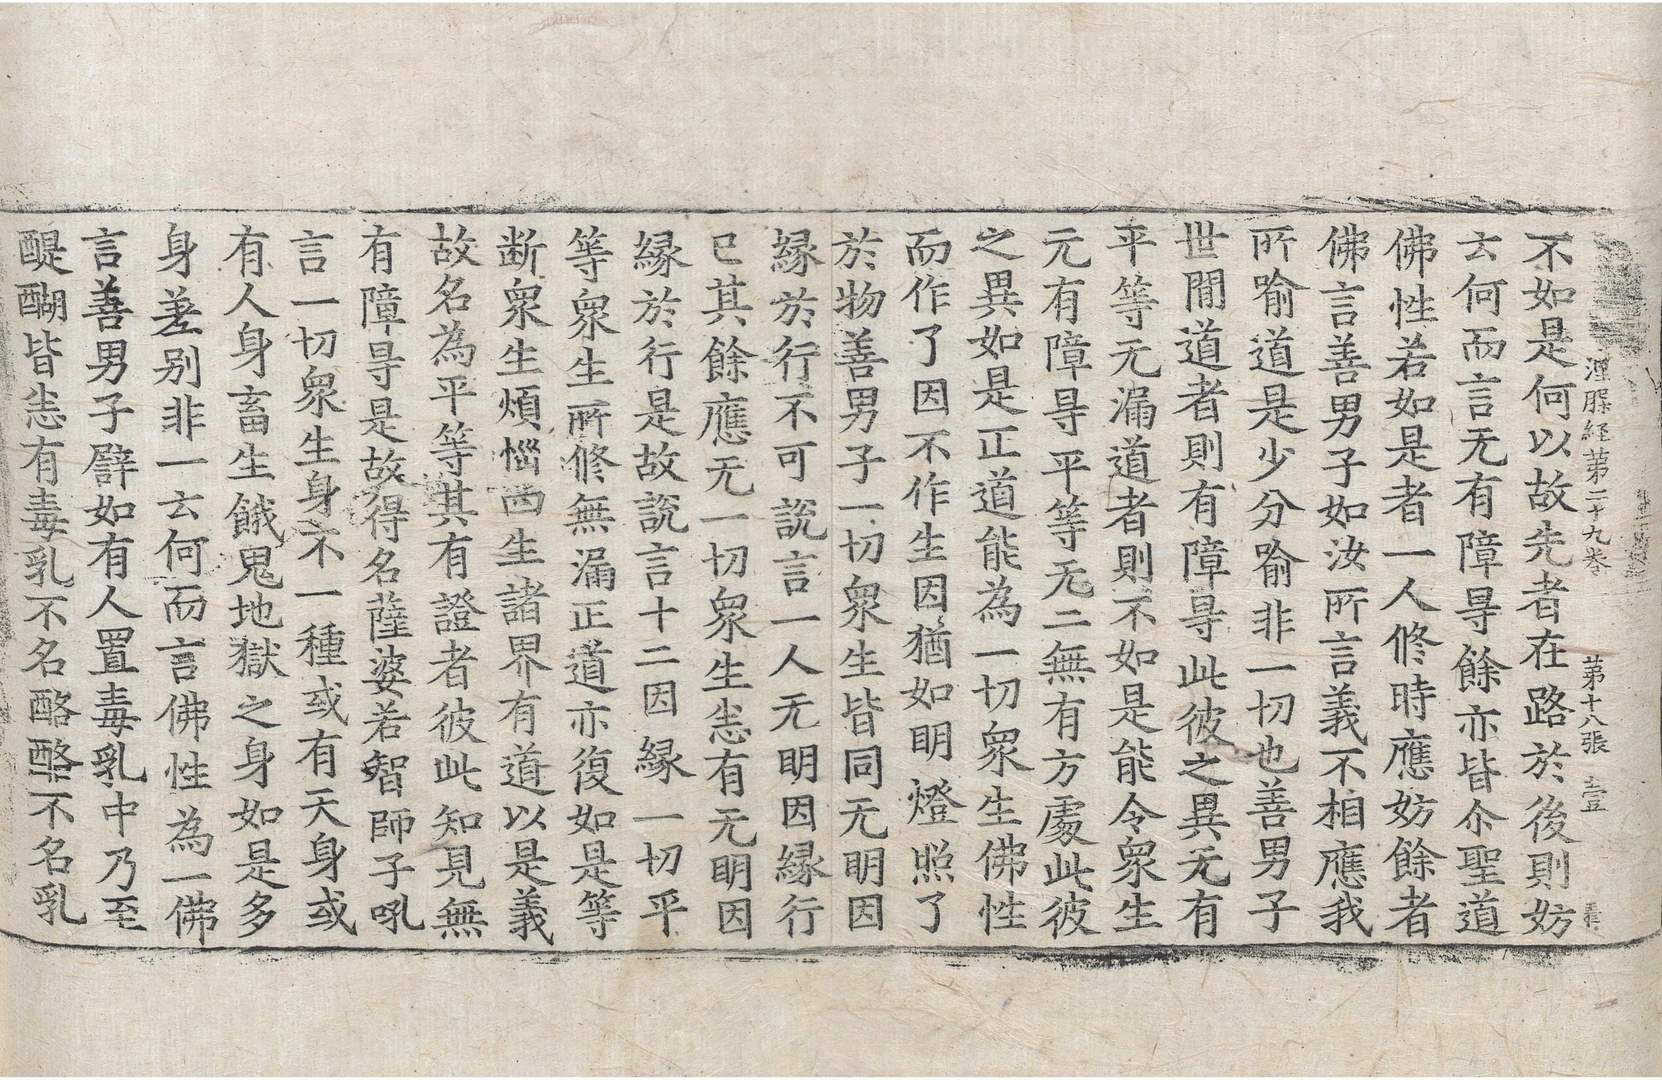 涅槃経苐二十九卷 苐十八張 壹
不如是何以故先者在路於後則妨
去何而言无有障㝵餘亦皆尒聖道
佛性若如是者一人修時應妨餘者
佛言善男子如汝所言義不相應我
所喻道是少分喻非一切也善男子
世間道者則有障㝵此彼之異无有
平等无漏道者則不如是能令衆生
无有障㝵平等无二無有方處此彼
之異如是正道能為一切衆生佛性
而作了因不作生因猶如明燈照了
於物善男子一切衆生皆同无明因
縁於行不可說言一人无明因縁行
已其餘應无一切衆生悉有无明因
縁於行是故說言十二因縁一切平
等衆生所修無漏正道亦復如是等
断衆生煩惱四生諸界有道以是義
故名為平等其有證者彼此知見無
有障㝵是故得名薩婆若智師子吼
言一切衆生身不一種或有天身或
有人身畜生餓鬼地獄之身如是多
身差别非一去何而言佛性為一佛
言善男子譬如有人置毒乳中乃至
醍醐皆悉有毒乳不名酪酪不名乳